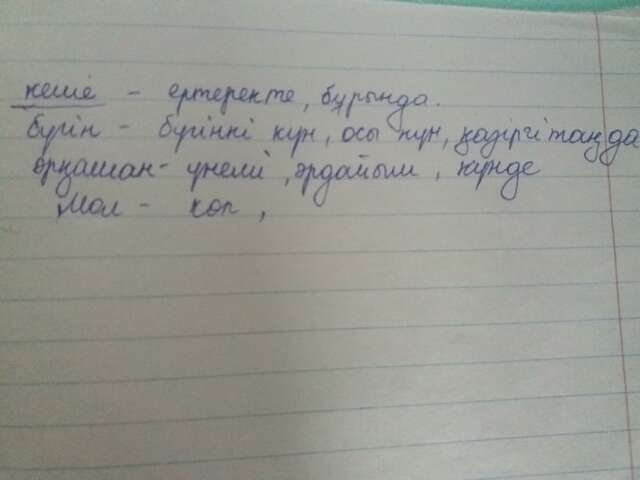 кеше - ертеректе, бұрында.
бүгін - бүгінгі күн, осы күн, қазіргі таңда
әрқашан - үнемі, әрдайым, күнде
Мол - көп,